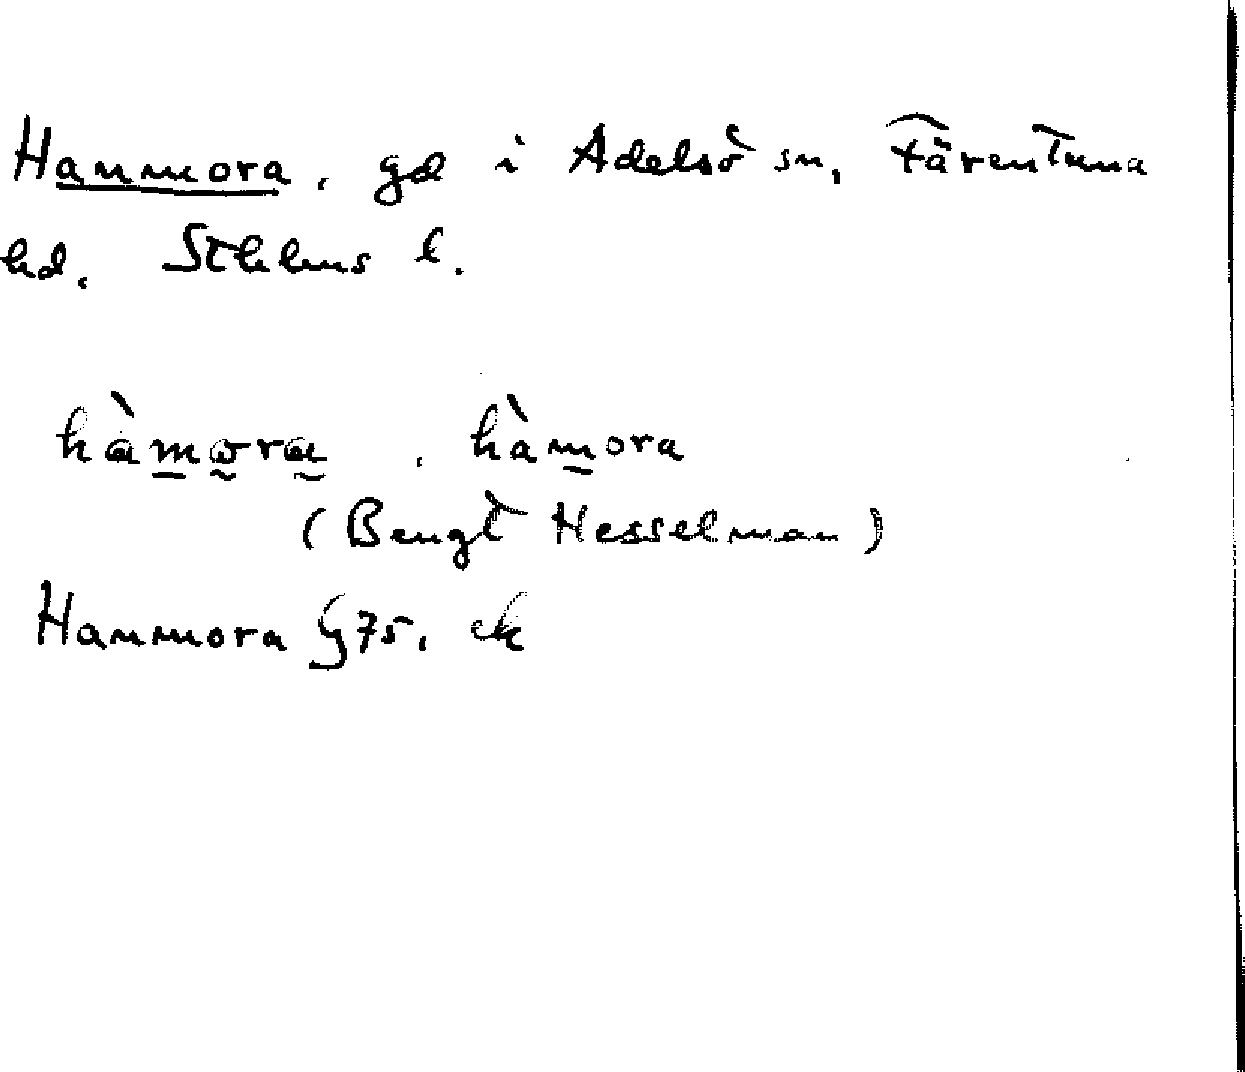 Hammora, gd i Adelsö sn, Färentuna
hd. Sthlms l.
hàmora, hàmora
(Bengt Hesselman)
Hammora G75. ek